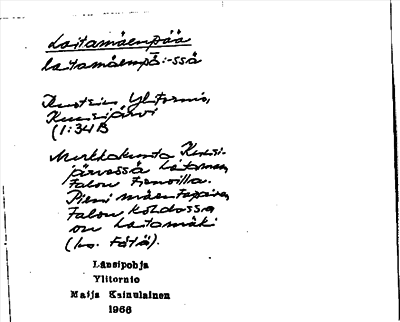 Laitamäenpää
laitamäempä:-ssä
Ylitornio,
Kuusijärvi
(1:34B
järvessä Laitamaa
Talon
Pieni mäentapainen
Talon kohdassa
on Laitamäki
(ks. Fätä).
Länsipohja
Ylitornio
Maija Kainulainen
1966